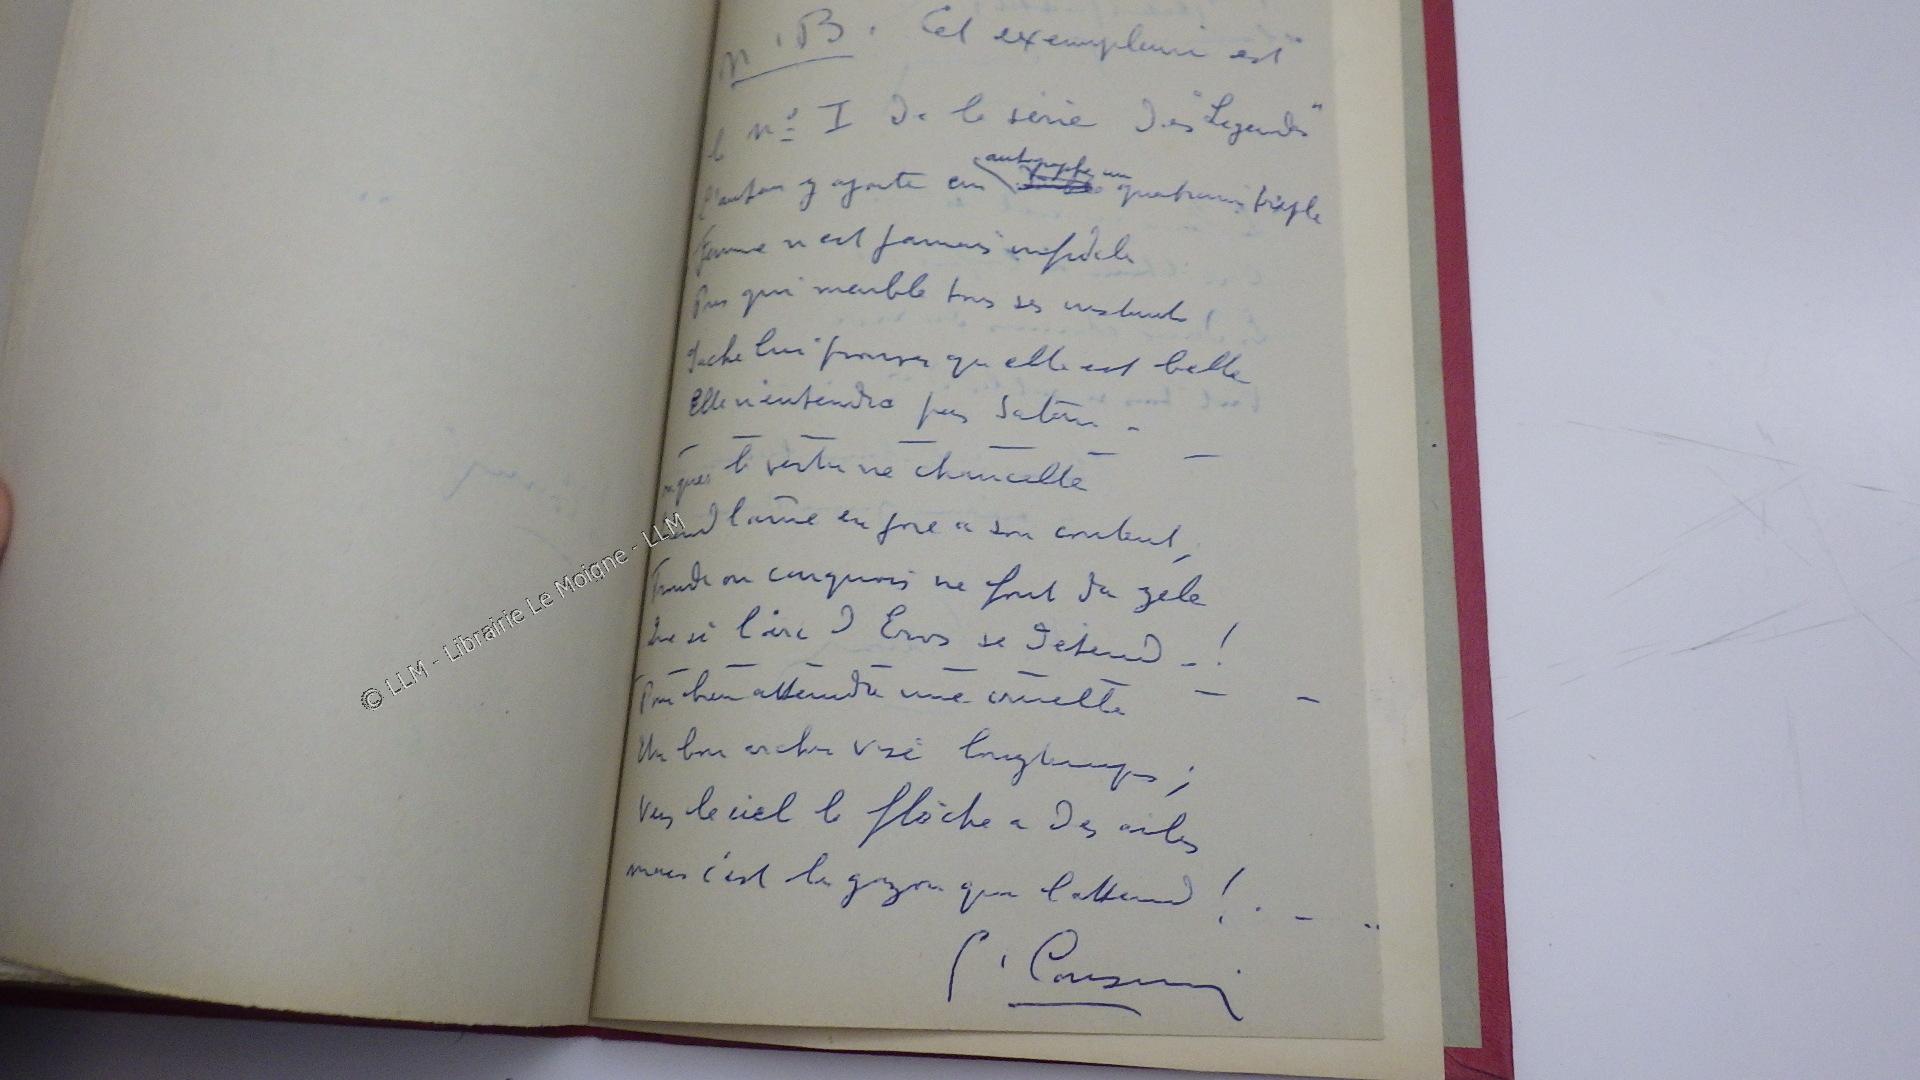 N.B. Cet exemplaire est
le nº I de la série des "Légendes"
L'auteur y ajoute en autographe un quatrain triple
Femme n'est jamais infidèle
Pour qui meuble tous ses instants !
Sache lui prouver qu'elle est belle
Elle n'entendra pas Satan -
la vertu ne chancelle
l'âme en joie a son content,
ou carquois ne font du zèle
Que si l'arc d'Eros se détend - !
Pour bien attendre une cruelle
Un bon archer vise longtemps ;
Vers le ciel la flèche a des ailes
mais c'est le gazon qui l'attend !
© LLM - Librairie Le Moigne - LLM